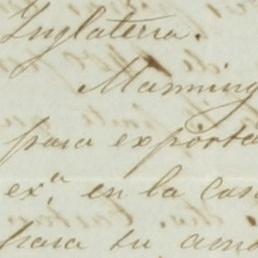 Inglaterra.
Manning
para exporta
ex.ª en la Cas
para su